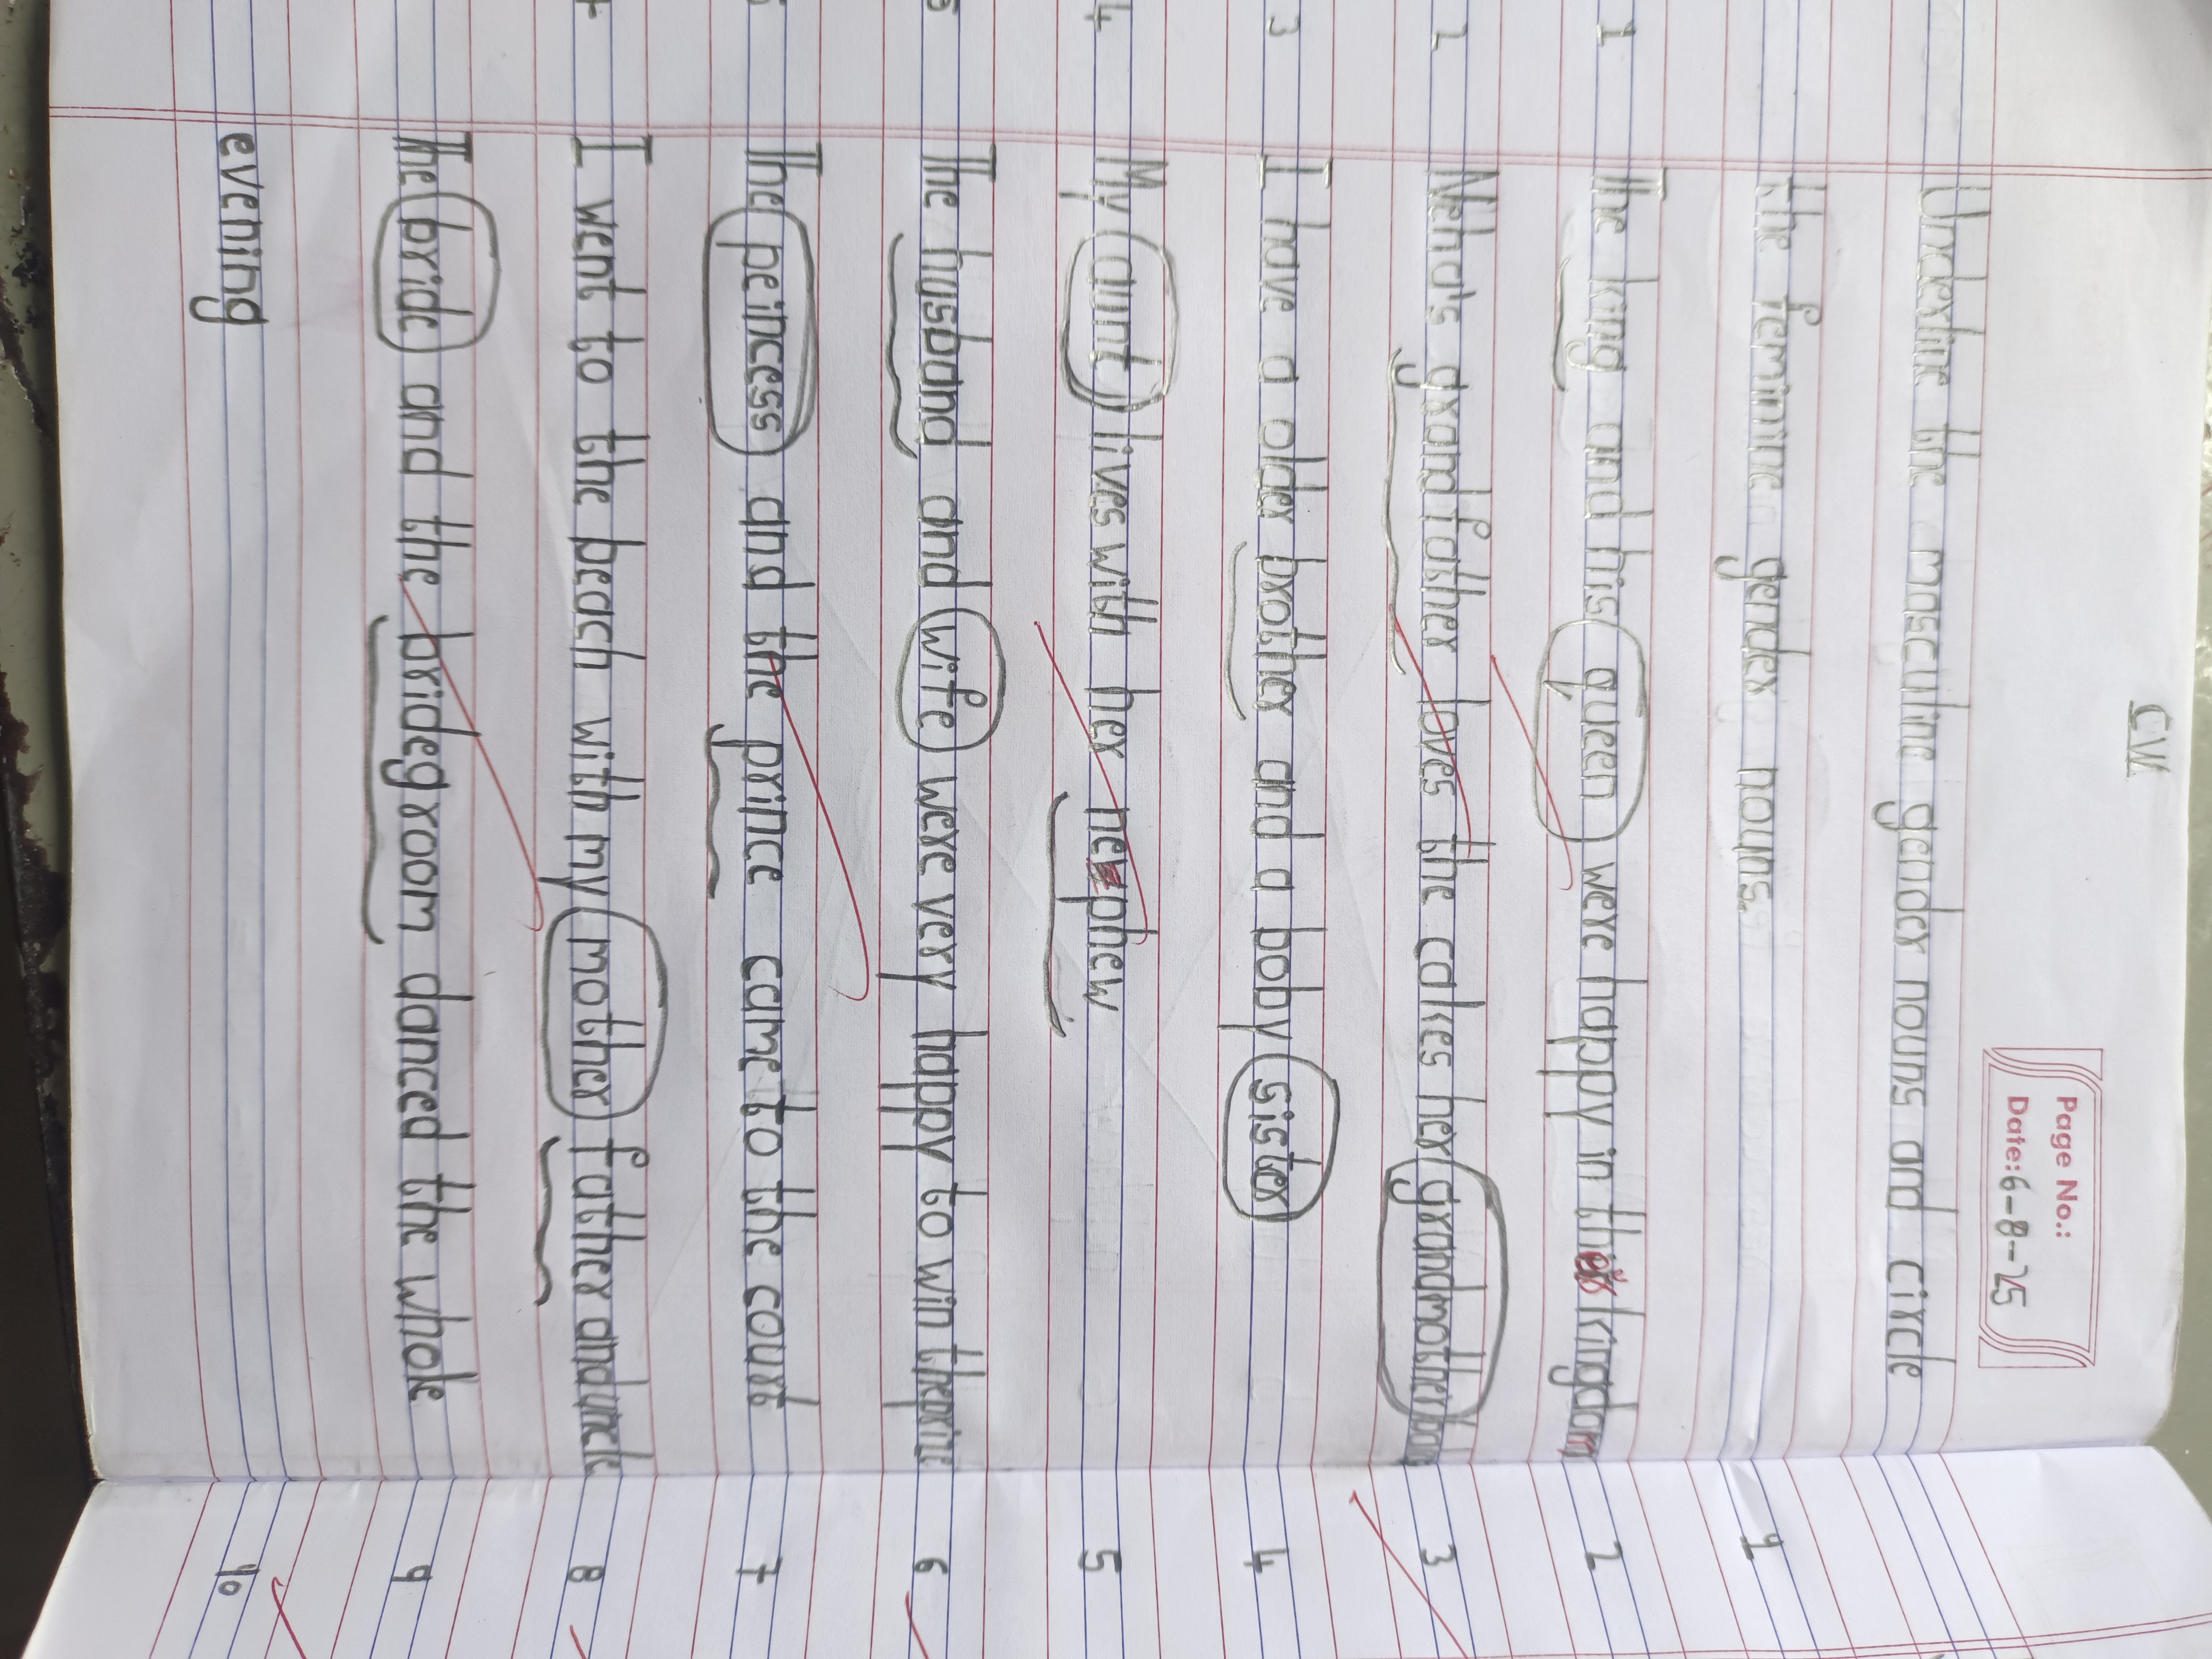 CW
Page No.:
Date: 6-8-25
Underline the masculine gender nouns and circle
the feminine gender nouns.
1 The king and his queen were happy in their kingdom
2 Neha's grandfather loves the cakes her grandmother
3 I have a older brother and a baby sister
4 My aunt lives with her nephew
The husband and wife were very happy to win the prize
The peincess and the prince came to the court
I went to the beach with my mother father and uncle
The bride and the bridegroom danced the whole
evening
1
2
3
4
5
6
7
8
9
10